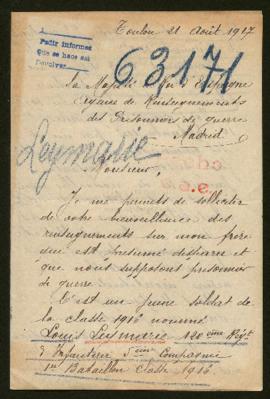 Toulon 21 Août 1917
Pedir informes
que se hace así
63171
Sa Majesté d'Espagne
Organe de Renseignements
des Prisonniers de guerre
Madrid
Leymarie
Monsieur,
Je me permets de solliciter
de votre bienveillance des
renseignements sur mon frère
qui est présumé disparu et
que nous supposons prisonnier
de guerre
C'est un jeune soldat de
la classe 1916 nommé
Louis Leymarie 120ème Régt
d'Infanterie 5ème Compagnie
1er Bataillon Classe 1916